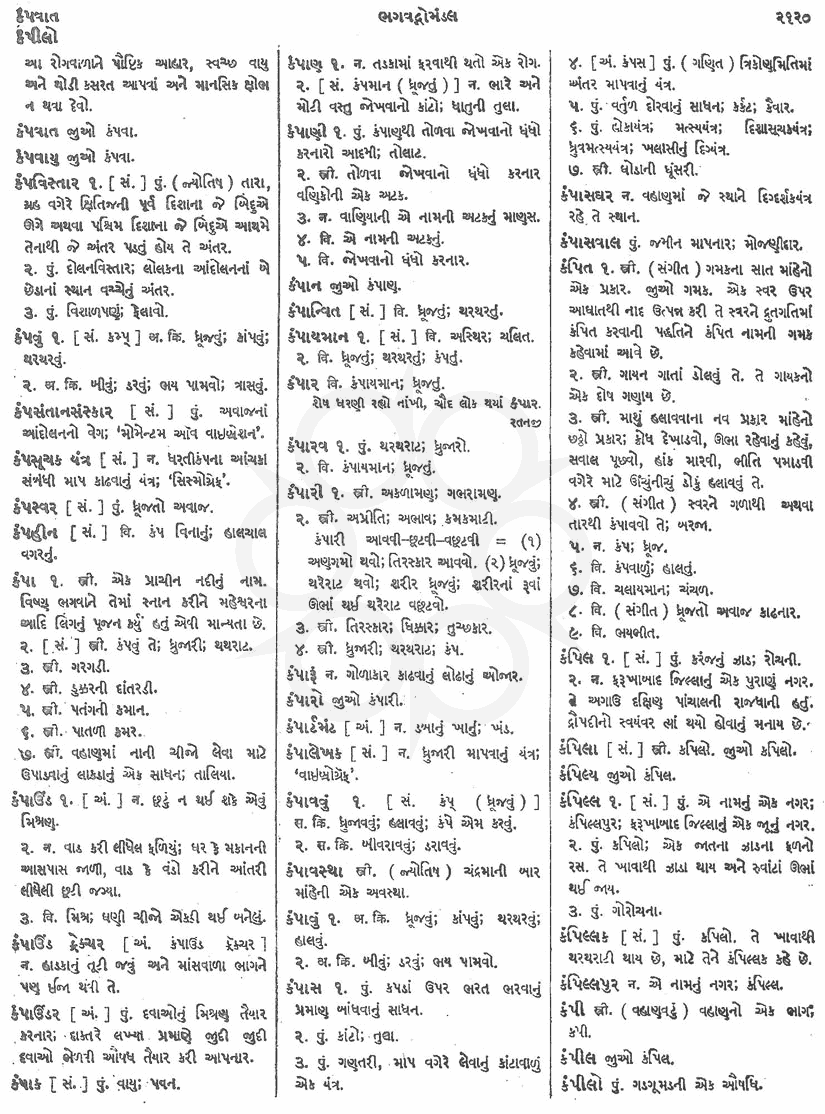 કંપવાત
ભગવદ્ગોમંડલ
૨૧૨૦
કંપીલો
આ રોગવાળાને પૌષ્ટિક આહાર, સ્વચ્છ વાયુ
અને થોડી કસરત આપવાં અને માનસિક ક્ષોભ
ન થવા દેવો.
કંપવાત જુઓ કંપવા.
કંપવાયુ જુઓ કંપવા.
કંપવિસ્તાર ૧. [ સં. ] પું. ( જ્યોતિષ ) તારા,
ગ્રહ વગેરે ક્ષિતિજની પૂર્વ દિશાના જે બિંદુએ
ઊગે અથવા પશ્ચિમ દિશાના જે બિંદુએ આથમે
તેનાથી જે અંતર પડતું હોય તે અંતર.
૨. પું. દોલનવિસ્તાર; લોલકના આંદોલનનાં બે
છેડાનાં સ્થાન વચ્ચેનું અંતર.
૩. પું. વિશાળપણું; ફેલાવો.
કંપવું ૧. [ સં. કમ્પ્ ] અ. ક્રિ. ધ્રૂજવું; કાંપવું;
થરથરવું.
૨. અ. ક્રિ. બીવું; ડરવું; ભય પામવો; ત્રાસવું.
કંપસંતાનસંસ્કાર [ સં. ] પું. અવાજનાં
આંદોલનનો વેગ; ‘મોમેન્ટમ ઑવ વાઇબ્રેશન’.
કંપસૂચક યંત્ર [ સં. ] ન. ધરતીકંપના આંચકા
સંબંધી માપ કાઢવાનું યંત્ર; ‘સિસ્મોગ્રેફ’.
કંપસ્વર [ સં. ] પું. ધ્રૂજતો અવાજ.
કંપહીન [ સં. ] વિ. કંપ વિનાનું; હાલચાલ
વગરનું.
કંપા ૧. સ્ત્રી. એક પ્રાચીન નદીનું નામ.
વિષ્ણુ ભગવાને તેમાં સ્નાન કરીને મહેશ્વરના
આદિ લિંગનું પૂજન કર્યું હતું એવી માન્યતા છે.
૨. [ સં. ] સ્ત્રી. કંપવું તે; ધ્રુજારી; થથરાટ.
૩. સ્ત્રી. ગરગડી.
૪. સ્ત્રી. ડુક્કરની દાંતરડી.
૫. સ્ત્રી. પતંગની કમાન.
૬. સ્ત્રી. પાતળી કમર.
૭. સ્ત્રી. વહાણમાં નાની ચીજો લેવા માટે
ઉપાડવાનું લાકડાનું એક સાધન; તાલિયા.
કંપાઉંડ ૧. [ અં. ] ન. છૂટું ન થઈ શકે એવું
મિશ્રણ.
૨. ન. વાડ કરી લીધેલ ફળિયું; ઘર કે મકાનની
આસપાસ જાળી, વાડ કે વંડો કરીને આંતરી
લીધેલી છૂટી જગ્યા.
૩. વિ. મિશ્ર; ઘણી ચીજો એકઠી થઈ બનેલું.
કંપાઉંડ ફ્રેક્ચર [ અં. કંપાઉંડ ફ્રૅક્ચર ]
ન. હાડકાનું તૂટી જવું અને માંસવાળા ભાગને
પણ ઈજા થવી તે.
કંપાઉંડર [ અં. ] પું. દવાઓનું મિશ્રણ તૈયાર
કરનાર; દાક્તરે લખ્યા પ્રમાણે જુદી જુદી
દવાઓ ભેળવી ઔષધ તૈયાર કરી આપનાર.
કંપાક [ સં. ] પું. વાયુ; પવન.
કંપાણ ૧. ન. તડકામાં ફરવાથી થતો એક રોગ.
૨. [ સં. કંપમાન ( ધ્રૂજતું ) ] ન. ભારે અને
મોટી વસ્તુ જોખવાનો કાંટો; ધાતુની તુલા.
કંપાણી ૧. પું. કંપાણથી તોળવા જોખવાનો ધંધો
કરનારો આદમી; તોલાટ.
૨. સ્ત્રી. તોળવા જોખવાનો ધંધો કરનાર
વણિકોની એક અટક.
૩. ન. વાણિયાની એ નામની અટકનું માણસ.
૪. વિ. એ નામની અટકનું.
૫. વિ. જોખવાનો ધંધો કરનાર.
કંપાન જુઓ કંપાણ.
કંપાન્વિત [ સં. ] વિ. ધ્રૂજતું; થરથરતું.
કંપાયમાન ૧. [ સં. ] વિ. અસ્થિર; ચલિત.
૨. વિ. ધ્રૂજતું; થરથરતું; કંપતું.
કંપાર વિ. કંપાયમાન; ધ્રૂજતું.
શેષ ધરણી રહ્યો નાંખી, ચૌદ લોક થયાં કંપાર.
રતનજી
કંપારવ ૧. પું. થરથરાટ; ધ્રુજારો.
૨. વિ. કંપાયમાન; ધ્રૂજતું.
કંપારી ૧. સ્ત્રી. અકળામણ; ગભરામણ.
૨. સ્ત્રી. અપ્રીતિ; અભાવ; કમકમાટી.
કંપારી આવવી-છૂટવી-વછૂટવી = (૧)
અણગમો થવો; તિરસ્કાર આવવો. (૨) ધ્રૂજવું;
થરેરાટ થવો; શરીર ધ્રૂજવું; શરીરનાં રૂવાં
ઊભાં થઈ થરેરાટ વછૂટવો.
૩. સ્ત્રી. તિરસ્કાર; ધિક્કાર; તુચ્છકાર.
૪. સ્ત્રી. ધ્રુજારી; થરથરાટ; કંપ.
કંપારૂં ન. ગોળાકાર કાઢવાનું લોઢાનું ઓજાર.
કંપારો જુઓ કંપારી.
કંપાર્ટમંટ [ અં. ] ન. ડબાનું ખાનું; ખંડ.
કંપાલેખક [ સં. ] ન. ધ્રુજારી માપવાનું યંત્ર;
‘વાઇબ્રોગ્રેફ’.
કંપાવવું ૧. [ સં. કંપ્ ( ધ્રૂજવું ) ]
સ. ક્રિ. ધ્રુજાવવું; હલાવવું; કંપે એમ કરવું.
૨. સ. ક્રિ. બીવરાવવું; ડરાવવું.
કંપાવસ્થા સ્ત્રી. ( જ્યોતિષ ) ચંદ્રમાની બાર
માંહેની એક અવસ્થા.
કંપાવું ૧. અ. ક્રિ. ધ્રૂજવું; કાંપવું; થરથરવું;
હાલવું.
૨. અ. ક્રિ. બીવું; ડરવું; ભય પામવો.
કંપાસ ૧. પું. કપડાં ઉપર ભરત ભરવાનું
પ્રમાણ બાંધવાનું સાધન.
૨. પું. કાંટો; તુલા.
૩. પું. ગણતરી, માપ વગેરે લેવાનું કાંટાવાળું
એક યંત્ર.
૪. [ અં. કંપસ ] પું. ( ગણિત ) ત્રિકોણમિતિમાં
અંતર માપવાનું યંત્ર.
૫. પું. વર્તુળ દોરવાનું સાધન; કર્કટ; કૈવાર.
૬. પું. હોકાયંત્ર; મત્સ્યયંત્ર; દિશાસૂચકયંત્ર;
ધ્રુવમત્સ્યયંત્ર; ખલાસીનું દિગ્યંત્ર.
૭. સ્ત્રી. ઘોડાની ધૂંસરી.
કંપાસઘર ન. વહાણમાં જે સ્થાને દિગ્દર્શકયંત્ર
રહે તે સ્થાન.
કંપાસવાલ પું. જમીન માપનાર; મોજણીદાર.
કંપિત ૧. સ્ત્રી. ( સંગીત ) ગમકના સાત માંહેનો
એક પ્રકાર. જુઓ ગમક. એક સ્વર ઉપર
આઘાતથી નાદ ઉત્પન્ન કરી તે સ્વરને દ્રુતગતિમાં
કંપિત કરવાની પદ્ધતિને કંપિત નામની ગમક
કહેવામાં આવે છે.
૨. સ્ત્રી. ગાયન ગાતાં ડોલવું તે. તે ગાયકનો
એક દોષ ગણાય છે.
૩. સ્ત્રી. માથું હલાવવાના નવ પ્રકાર માંહેનો
છઠ્ઠો પ્રકાર; ક્રોધ દેખાડવો, ઊભા રહેવાનું કહેવું,
સવાલ પૂછવો, હાંક મારવી, ભીતિ પમાડવી
વગેરે માટે ઊંચુંનીચું ડોકું હલાવવું તે.
૪. સ્ત્રી. ( સંગીત ) સ્વરને ગળાથી અથવા
તારથી કંપાવવો તે; બરજા.
૫. ન. કંપ; ધ્રૂજ.
૬. વિ. કંપવાળું; હાલતું.
૭. વિ. ચલાયમાન; ચંચળ.
૮. વિ. ( સંગીત ) ધ્રૂજતો અવાજ કાઢનાર.
૯. વિ. ભયભીત.
કંપિલ ૧. [ સં. ] પું. કરંજનું ઝાડ; રોચની.
૨. ન. ફરૂખાબાદ જિલ્લાનું એક પુરાણું નગર.
તે અગાઉ દક્ષિણ પાંચાલની રાજધાની હતું.
દ્રૌપદીનો સ્વયંવર ત્યાં થયો હોવાનું મનાય છે.
કંપિલા [ સં. ] સ્ત્રી. કપિલો. જુઓ કપિલો.
કંપિલ્ય જુઓ કંપિલ.
કંપિલ્લ ૧. [ સં. ] પું. એ નામનું એક નગર;
કંપિલ્લપુર; ફરૂખાબાદ જિલ્લાનું એક જૂનું નગર.
૨. પું. કપિલો; એક જાતના ઝાડના ફળનો
રસ. તે ખાવાથી ઝાડા થાય અને રુવાંટાં ઊભાં
થઈ જાય.
૩. પું. ગોરોચના.
કંપિલ્લક [ સં. ] પું. કપિલો. તે ખાવાથી
થરથરાટી થાય છે, માટે તેને કંપિલ્લક કહે છે.
કંપિલ્લપુર ન. એ નામનું નગર; કંપિલ્લ.
કંપી સ્ત્રી. ( વહાણવટું ) વહાણનો એક ભાગ;
કપી.
કંપીલ જુઓ કંપિલ.
કંપીલો પું. ગડગૂમડની એક ઔષધિ.